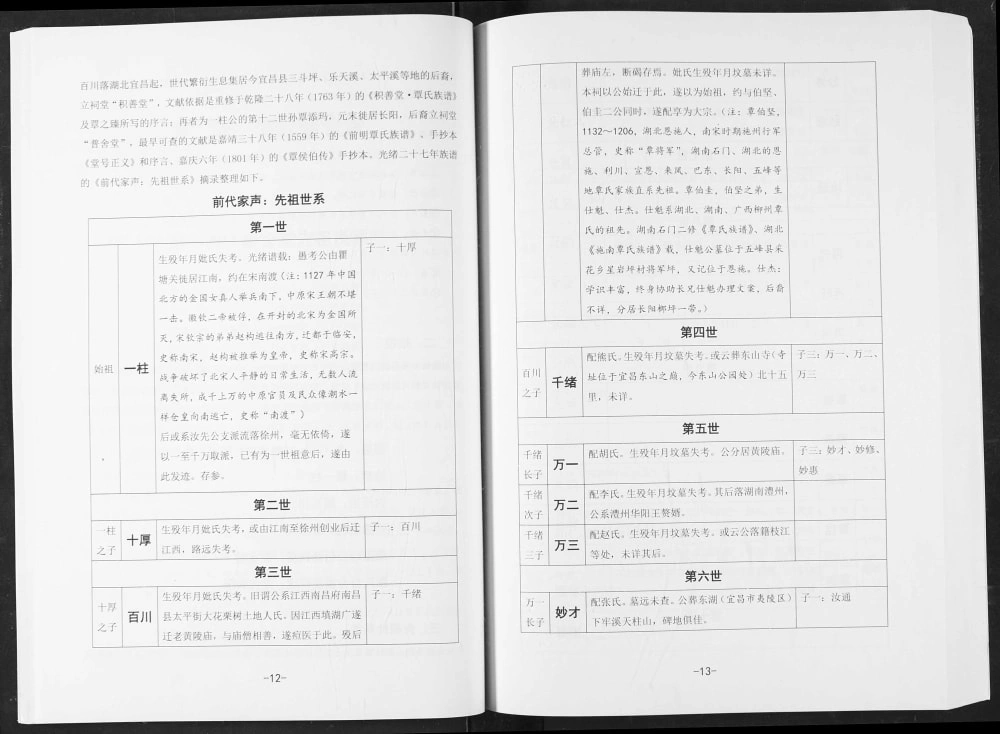 百川落湖北宜昌起，世代繁衍生息集居今宜昌县三斗坪、乐天溪、太平溪等地的后裔，
立祠堂“积善堂”，文献依据是重修于乾隆二十八年（1763年）的《积善堂·覃氏族谱》
及覃之臻所写的序言；再者为一柱公的第十二世孙覃添玛，元末徙居长阳，后裔立祠堂
“普舍堂”，最早可查的文献是嘉靖三十八年（1559年）的《前明覃氏族谱》、手抄本
《堂号正义》和序言、嘉庆六年（1801年）的《覃侯伯传》手抄本。光绪二十七年族谱
的《前代家声：先祖世系》摘录整理如下。
前代家声：先祖世系
第一世
始祖
一柱
生殁年月妣氏失考。光绪谱载：愚考公由瞿
塘关徙居江南，约在宋南渡（注：1127年中国
北方的金国女真人举兵南下，中原宋王朝不堪
一击。徽钦二帝被俘，在开封的北宋为金国所
灭，宋钦宗的弟弟赵构逃往南方，迁都于临安，
史称南宋，赵构被推举为皇帝，史称宋高宗。
战争破坏了北宋人平静的日常生活，无数人流
离失所，成千上万的中原官员及民众像潮水一
样仓皇向南逃亡，史称“南渡”）
后或系汝先公支派流落徐州，毫无依倚，遂
以一至千万取派，已有为一世祖意后，遂由
此发迹。存参。
子一：十厚
第二世
一柱
之子
十厚
生殁年月妣氏失考，或由江南至徐州创业后迁
江西，路远失考。
子一：百川
第三世
十厚
之子
百川
生殁年月妣氏失考。旧谓公系江西南昌府南昌
县太平街大花栗树土地人氏。因江西填湖广遂
迁老黄陵庙，与庙僧相善，遂殡医于此。殁后
子一：千绪
-12-
葬庙左，断碣存焉。妣氏生殁年月坟墓未详。
本祠以公始迁于此，遂以为始祖，约与伯坚、
伯圭二公同时，遂配享为大宗。（注：覃伯坚，
1132～1206，湖北恩施人，南宋时期施州行军
总管，史称“覃将军”，湖南石门、湖北的恩
施、利川、宣恩、来凤、巴东、长阳、五峰等
地覃氏家族直系先祖。覃伯圭，伯坚之弟，生
仕魁、仕杰。仕魁系湖北、湖南、广西柳州覃
氏的祖先。湖南石门二修《覃氏族谱》、湖北
《施南覃氏族谱》载，仕魁公墓位于五峰县采
花乡星岩坪村将军坪，又记位于恩施。仕杰：
学识丰富，终身协助长兄仕魁办理文案，后裔
不详，分居长阳榔坪一带。）
第四世
百川
之子
千绪
配熊氏。生殁年月坟墓失考。或云葬东山寺（寺
址位于宜昌东山之巅，今东山公园处）北十五
里，未详。
子三：万一、万二、
万三
第五世
千绪
长子
万一
配胡氏。生殁年月坟墓失考。公分居黄陵庙。
子三：妙才、妙修、
妙惠
千绪
次子
万二
配李氏。生殁年月坟墓失考。其后落湖南澧州，
公系澧州华阳王赘婿。
千绪
三子
万三
配赵氏。生殁年月坟墓失考。或云公落籍枝江
等处，未详其后。
第六世
万一
长子
妙才
配张氏。墓远未查。公葬东湖（宜昌市夷陵区）
下牢溪天柱山，碑地俱佳。
子一：汝通
-13-